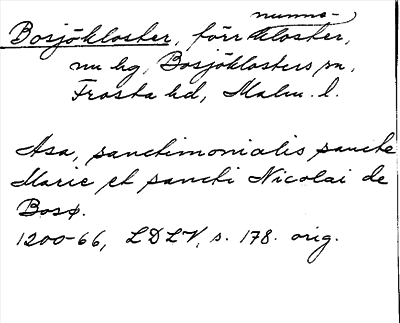 Bosjökloster, förr nunne-kloster,
nu hg, Bosjöklosters sn,
Frosta hd, Malm. l.
Asa, sanctimonialis sancte
Marie et sancti Nicolai de
Bosø.
1200-66, LDLV, s. 178. orig.